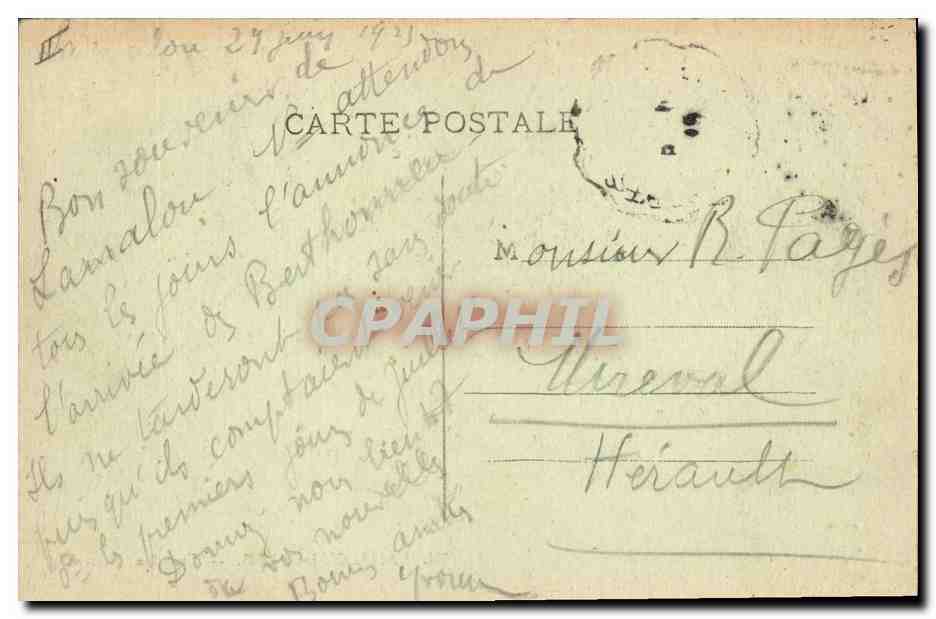 du 27 juin 1921
CARTE POSTALE
Bon souvenir de
Lamalou Ns attendons
tous les jours l'annonce de
l'arrivée des Berthomieu
Ils ne tarderont pas sans doute
puis qu'ils comptaient venir
les premiers jours de Juillet
Donnez nous bientôt
de vos nouvelles
Bonnes amitiés
Monsieur R. Pagès
Mireval
Hérault
CPAPHIL